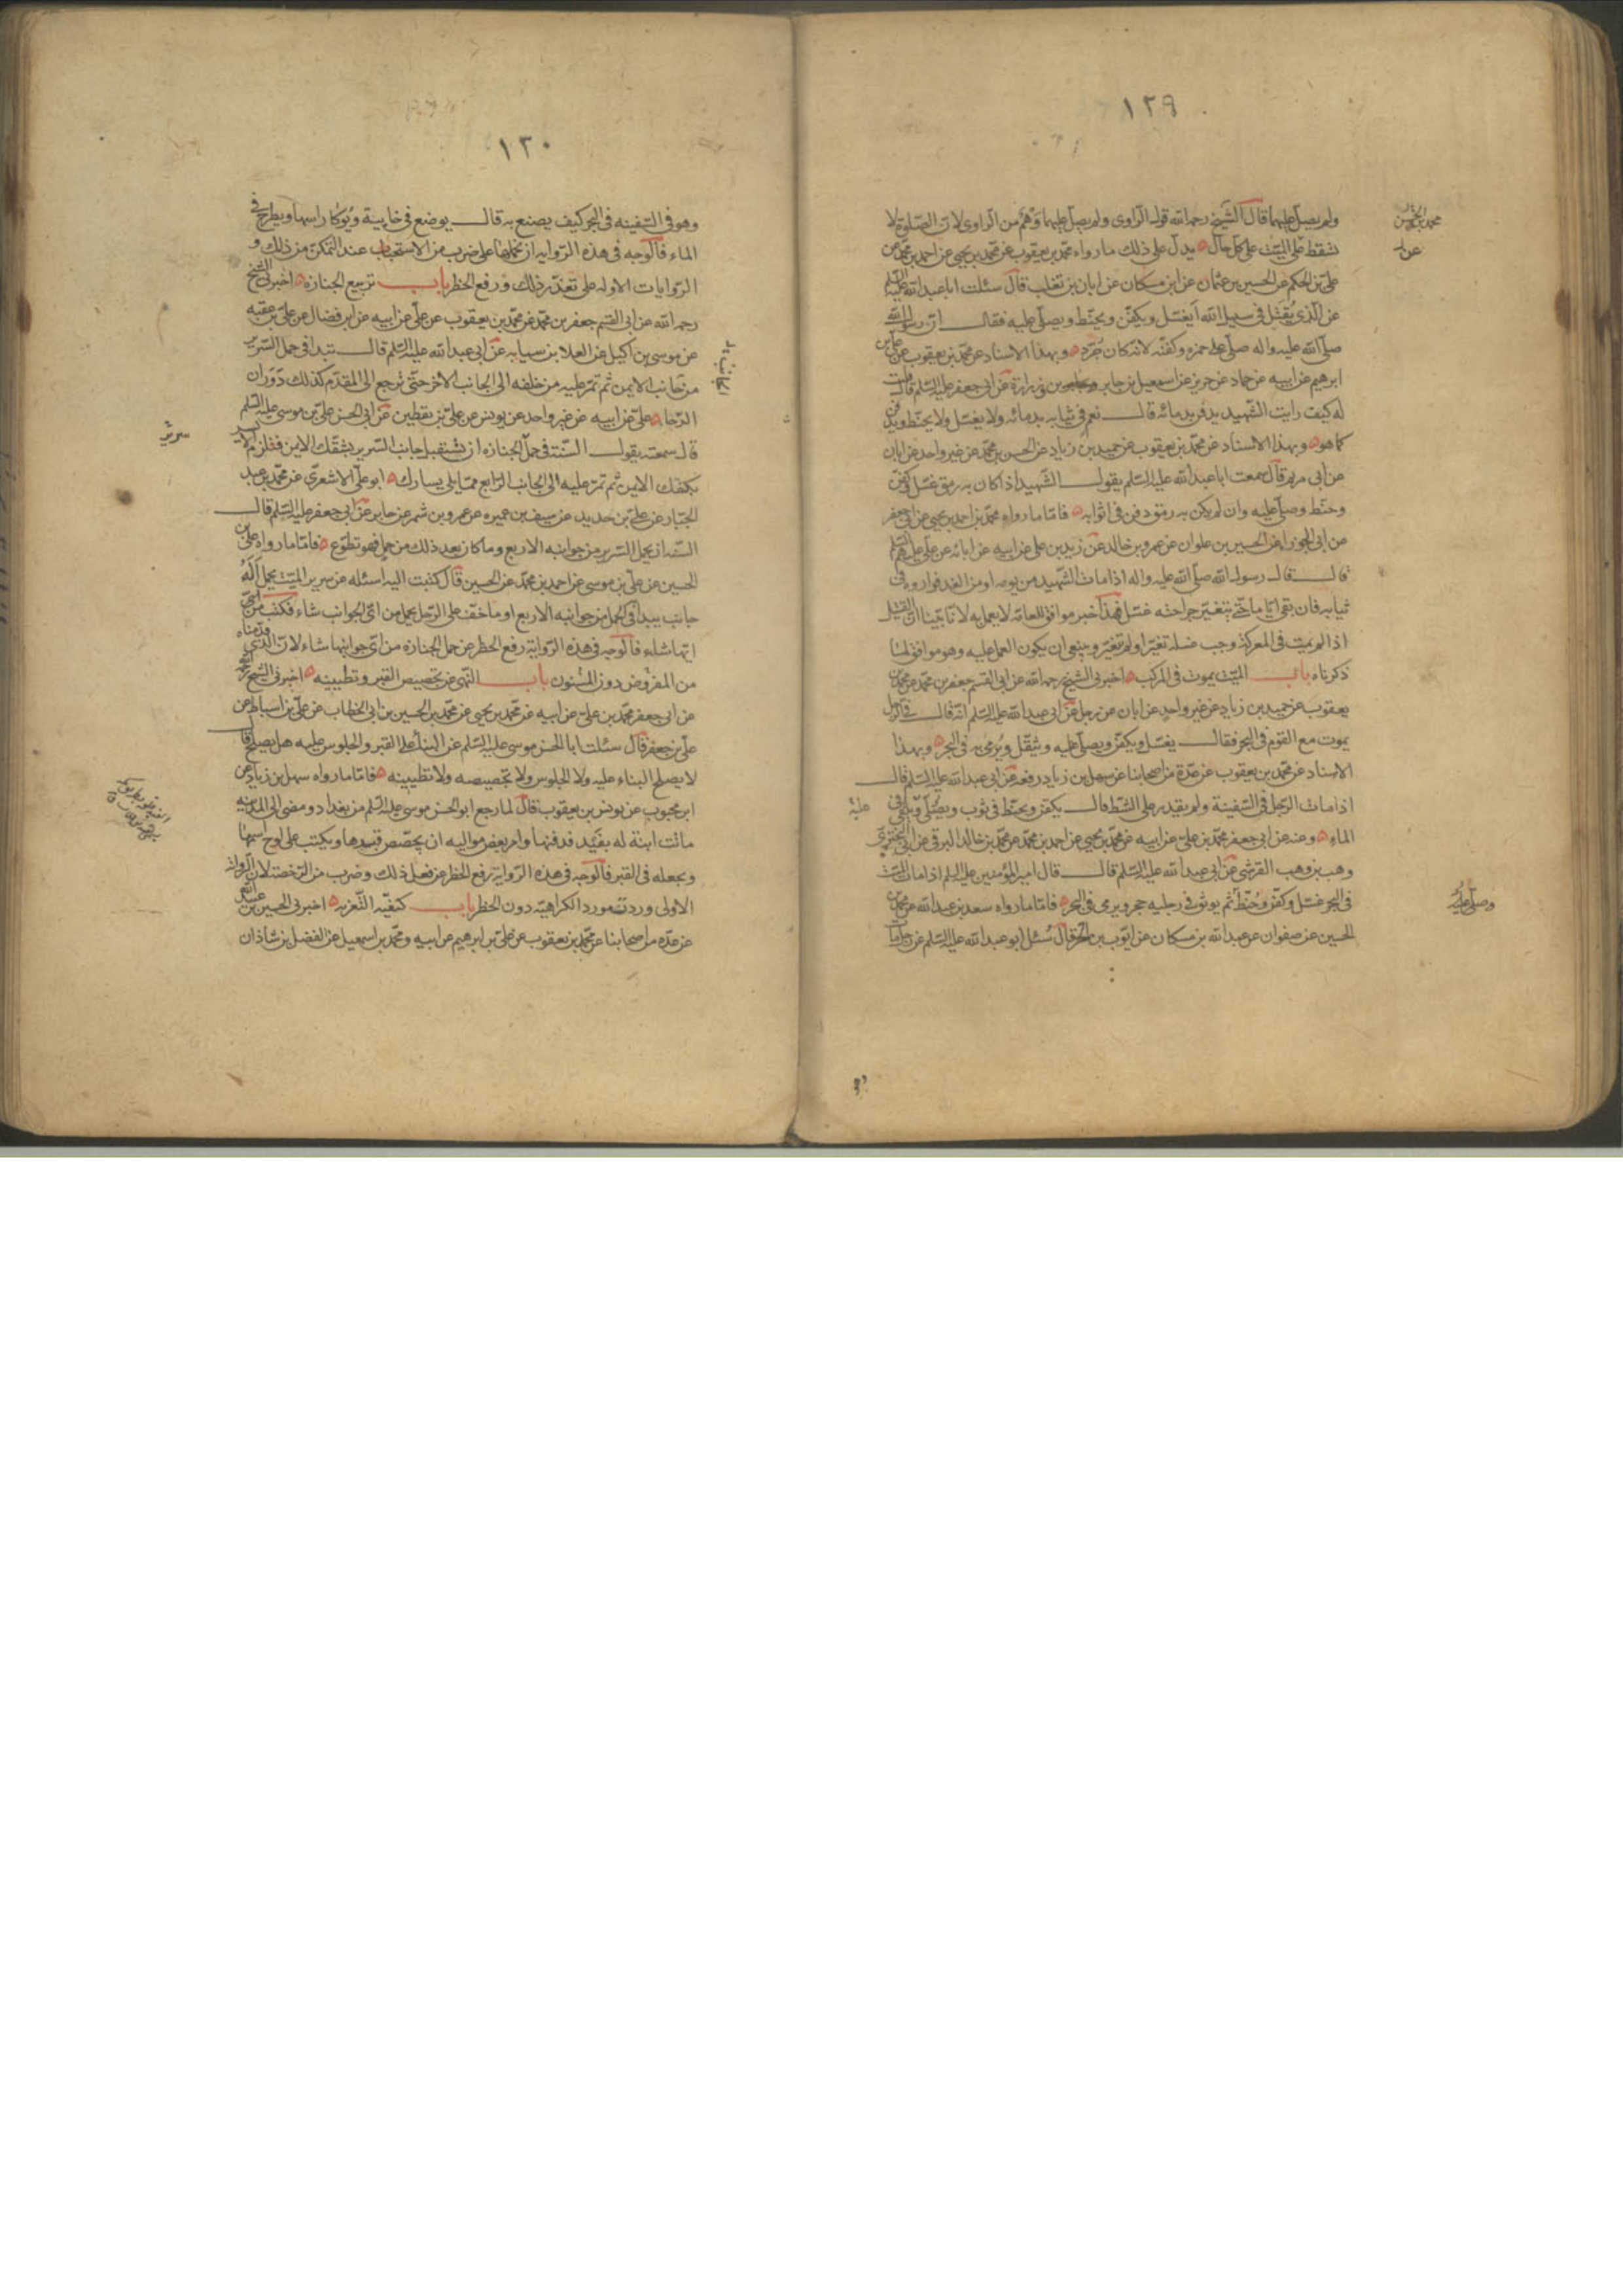 ١٢٩
ولم يصل عليهما قال الشيخ رحمه الله قول الراوى ولم يصل عليهما وهم من الراوى لان الصلوة لا
تسقط على الميت على كل حال يدل على ذلك ما رواه محمد بن يعقوب عن محمد بن يحيى عن احمد بن محمد عن
على بن الحكم عن الحسين بن عثمان عن ابن مسكان عن ابان بن تغلب قال سئلت ابا عبد الله عليه السلم
عن الذى يقتل فى سبيل الله ايغسل ويكفن ويحنط ويصلى عليه فقال ان رسول الله
صلى الله عليه واله صلى على حمزه وكفنه لانه كان جرد وبهذا الاسناد عن محمد بن يعقوب عن على بن
ابرهيم عن ابيه عن حماد عن حريز عن اسمعيل بن جابر وزرارة عن ابى جعفر عليه السلم قال قلت
له كيف رايت الشهيد يدفن بدمائه قال نعم فى ثيابه بدمائه ولا يغسل ولا يحنط ويدفن
كما هو وبهذا الاسناد عن محمد بن يعقوب عن حميد بن زياد عن الحسن بن محمد عن غير واحد عن ابان
عن ابى مريم قال سمعت ابا عبد الله عليه السلم يقول الشهيد اذا كان به رمق غسل وكفن
وحنط وصلى عليه وان لم يكن به رمق دفن فى اثوابه فاما ما رواه محمد بن احمد بن يحيى عن ابى جعفر
عن ابى الجوزا عن الحسين بن علوان عن عمرو بن خالد عن زيد بن على عن ابيه عن ابائه عن على عليهم السلم
قال قال رسول الله صلى الله عليه واله اذا مات الشهيد من يومه او من الغد فواروه فى
ثيابه فان بقى اياما حتى يتغير جراحته غسل فهذا خبر موافق للعامة لا يعمل به لانا بينا ان القتيل
اذا لم يمت فى المعركة وجب غسله تغير او لم تغير وينبغى ان يكون العمل عليه وهو موافق لما
ذكرناه باب الميت يموت فى المركب اخبرنى الشيخ رحمه الله عن ابى القسم جعفر بن محمد عن محمد بن
يعقوب عن حميد بن زياد عن غير واحد عن ابان عن رجل عن ابى عبد الله عليه السلم انه قال فى الرجل
يموت مع القوم فى البحر فقال يغسل ويكفن ويصلى عليه ويثقل ويرمى به فى البحر وبهذا
الاسناد عن محمد بن يعقوب عن عدة من اصحابنا عن سهل بن زياد رفعه عن ابى عبد الله عليه السلم قال
اذا مات الرجل فى السفينة ولم يقدر على الشط قال يكفن ويحنط فى ثوب ويصلى ويلقى فى
الماء وعنه عن ابى جعفر محمد بن على عن ابيه عن محمد بن يحيى عن احمد بن محمد عن محمد بن خالد البرقى عن ابى البخترى
وهب بن وهب القرشى عن ابى عبد الله عليه السلم قال قال امير المؤمنين عليه السلم اذا مات الميت
فى البحر غسل وكفن وحنط ثم يوثق فى رجليه حجر ويرمى فى البحر فاما ما رواه سعد بن عبد الله عن محمد بن
الحسين عن صفوان عن عبد الله بن مسكان عن ايوب بن الحر قال سئل ابو عبد الله عليه السلم عن رجل مات
عليه
١٣٠
وهو فى السفينه فى البحر كيف يصنع به قال يوضع فى خابية ويوكا راسها ويطرح فى
الماء فالوجه فى هذه الروايه ان نحملها على ضرب من الاستحباب عند التمكن من ذلك و
الروايات الاوله على تعذر ذلك ورفع الحظر باب تربيع الجنازه اخبرنى الشيخ
رحمه الله عن ابى القسم جعفر بن محمد عن محمد بن يعقوب عن على عن ابيه عن ابن فضال عن على بن عقبه
عن موسى بن اكيل عن العلا بن سيابه عن ابى عبد الله عليه السلم قال تبدا فى حمل السرير
من جانب الايمن ثم تمر عليه من خلفه الى الجانب الاخر حتى ترجع الى المقدم كذلك دوران
الرحا على عن ابيه عن غير واحد عن يونس عن على بن يقطين عن ابى الحسن على بن موسى عليه السلم
قال سمعته يقول السنة فى حمل الجنازه ان تستقبل جانب السرير بشقك الايمن فتلزم الايسر
بكفك الايمن ثم تمر عليه الى الجانب الرابع مما يلى يسارك ابو على الاشعرى عن محمد بن عبد
الجبار عن على بن حديد عن سيف بن عميره عن عمرو بن شمر عن جابر عن ابى جعفر عليه السلم قال
السنه ان يحمل السرير من جوانبه الاربع وما كان بعد ذلك من حمل فهو تطوع فاما ما رواه على بن
الحسين عن على بن موسى عن احمد بن محمد عن الحسين قال كتبت اليه اسئله عن سرير الميت يحمل اله
جانب يبدا فى الحمل من جوانبه الاربع او ما خف على الرجل يحمل من اى الجوانب شاء فكتب من
ايها شاء فالوجه فى هذه الرواية رفع الحظر عن حمل الجنازه من اى جوانبها شاء لان الذى قدمناه
من المفروض دون المسنون باب النهى عن تجصيص القبر وتطيينه اخبرنى الشيخ رحمه الله
عن ابى جعفر محمد بن على عن ابيه عن محمد بن يحيى عن محمد بن الحسين بن ابى الخطاب عن على بن اسباط عن
على بن جعفر قال سئلت ابا الحسن موسى عليه السلم عن البناء على القبر والجلوس عليه هل يصلح قال
لا يصلح البناء عليه ولا الجلوس ولا تجصيصه ولا تطيينه فاما ما رواه سهل بن زياد عن
ابن محبوب عن يونس بن يعقوب قال لما رجع ابو الحسن موسى عليه السلم من بغداد ومضى الى المدينه
ماتت ابنة له بفيد فدفنها وامر بعض مواليه ان يجصص قبرها ويكتب على لوح اسمها
ويجعله فى القبر فالوجه فى هذه الرواية رفع الحظر عن فعل ذلك وضرب من الرخصة لان الرواية
الاولى وردت مورد الكراهية دون الحظر باب كيفيه التعزيه اخبرنى الحسين بن عبيد الله
عن عده من اصحابنا عن محمد بن يعقوب عن على بن ابرهيم عن ابيه ومحمد بن اسمعيل عن الفضل بن شاذان
سرير